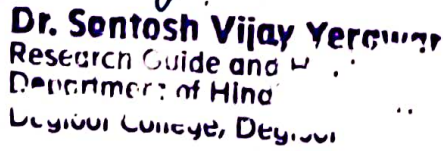 Dr. Santosh Vijay Yerawar
Research Guide and H
Department of Hind
Degloor College, Degloor